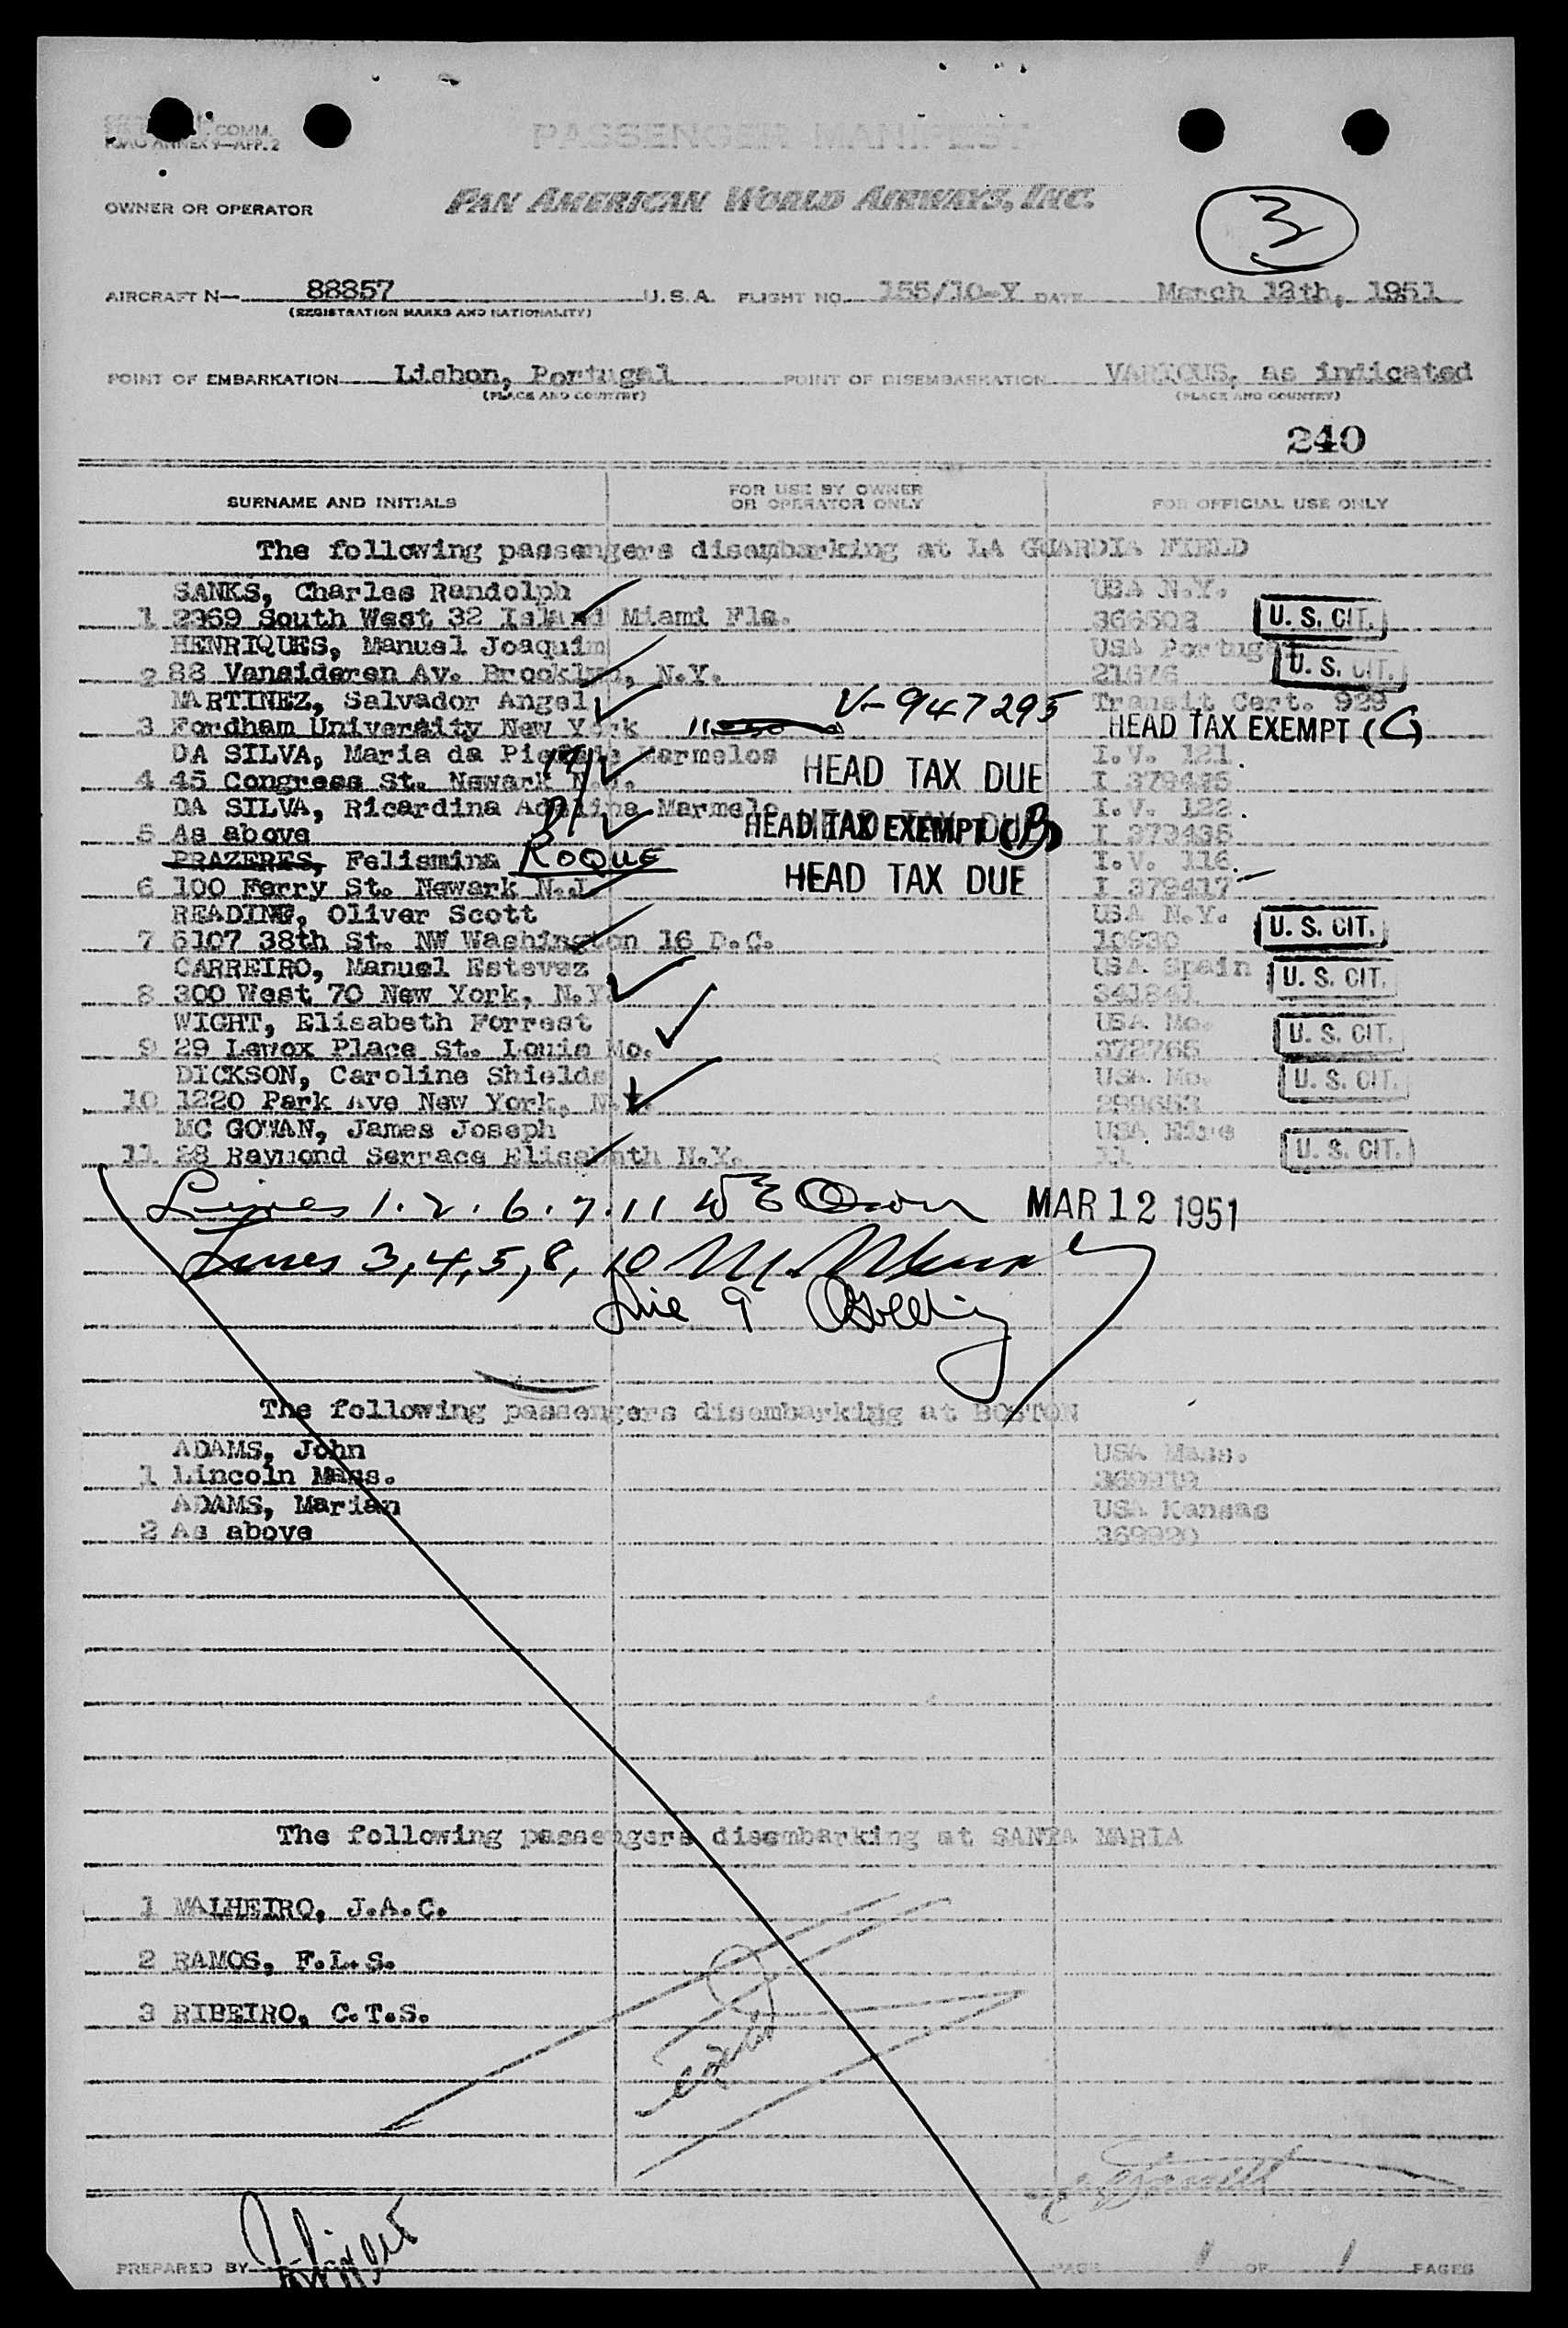 COMM.
ICAO ANNEX 9—APP. 2
PASSENGER MANIFEST
OWNER OR OPERATOR PAN AMERICAN WORLD AIRWAYS, INC.
3
AIRCRAFT N— 88857 U.S.A. FLIGHT NO. 155/10-Y DATE March 12th, 1951
(REGISTRATION MARKS AND NATIONALITY)
POINT OF EMBARKATION Lisbon, Portugal POINT OF DISEMBARKATION VARIOUS, as indicated
(PLACE AND COUNTRY) (PLACE AND COUNTRY)
240
SURNAME AND INITIALS FOR USE BY OWNER OR OPERATOR ONLY FOR OFFICIAL USE ONLY
The following passengers disembarking at LA GUARDIA FIELD
SANKS, Charles Randolph USA N.Y.
1 2969 South West 32 Island Miami Fla. 366502 U. S. CIT.
HENRIQUES, Manuel Joaquim USA Portugal
2 88 Vansideren Av. Brooklyn, N.Y. 21676 U. S. CIT.
MARTINEZ, Salvador Angel V-947295 Transit Cert. 929
3 Fordham University New York HEAD TAX EXEMPT (C)
DA SILVA, Maria da Piedade Marmelos I.V. 121
4 45 Congress St. Newark N.J. HEAD TAX DUE I 379436
DA SILVA, Ricardina Adelina Marmelo I.V. 122
5 As above HEAD TAX EXEMPT (B) I 379435
PRAZERES, Felismina ROQUE I.V. 116
6 100 Ferry St. Newark N.J. HEAD TAX DUE I 379417
READING, Oliver Scott USA N.Y.
7 5107 38th St. NW Washington 16 D.C. 10930 U. S. CIT.
CARREIRO, Manuel Estevez USA Spain
8 300 West 70 New York, N.Y. 341841 U. S. CIT.
WIGHT, Elisabeth Forrest USA Mo.
9 29 Lenox Place St. Louis Mo. 372765 U. S. CIT.
DICKSON, Caroline Shields USA Mo.
10 1220 Park Ave New York, N.Y. 289653 U. S. CIT.
MC GOWAN, James Joseph USA Eire
11 28 Raymond Serrace Elisabeth N.Y. 11 U. S. CIT.
Lines 1. 2. 6. 7. 11 MAR 12 1951
Lines 3, 4, 5, 8, 10
Line 9
The following passengers disembarking at BOSTON
ADAMS, John USA Mass.
1 Lincoln Mass. 369919
ADAMS, Marian USA Kansas
2 As above 369920
The following passengers disembarking at SANTA MARIA
1 MALHEIRO, J.A.C.
2 RAMOS, F.L.S.
3 RIBEIRO, C.T.S.
PREPARED BY PAGE 1 OF 1 PAGES